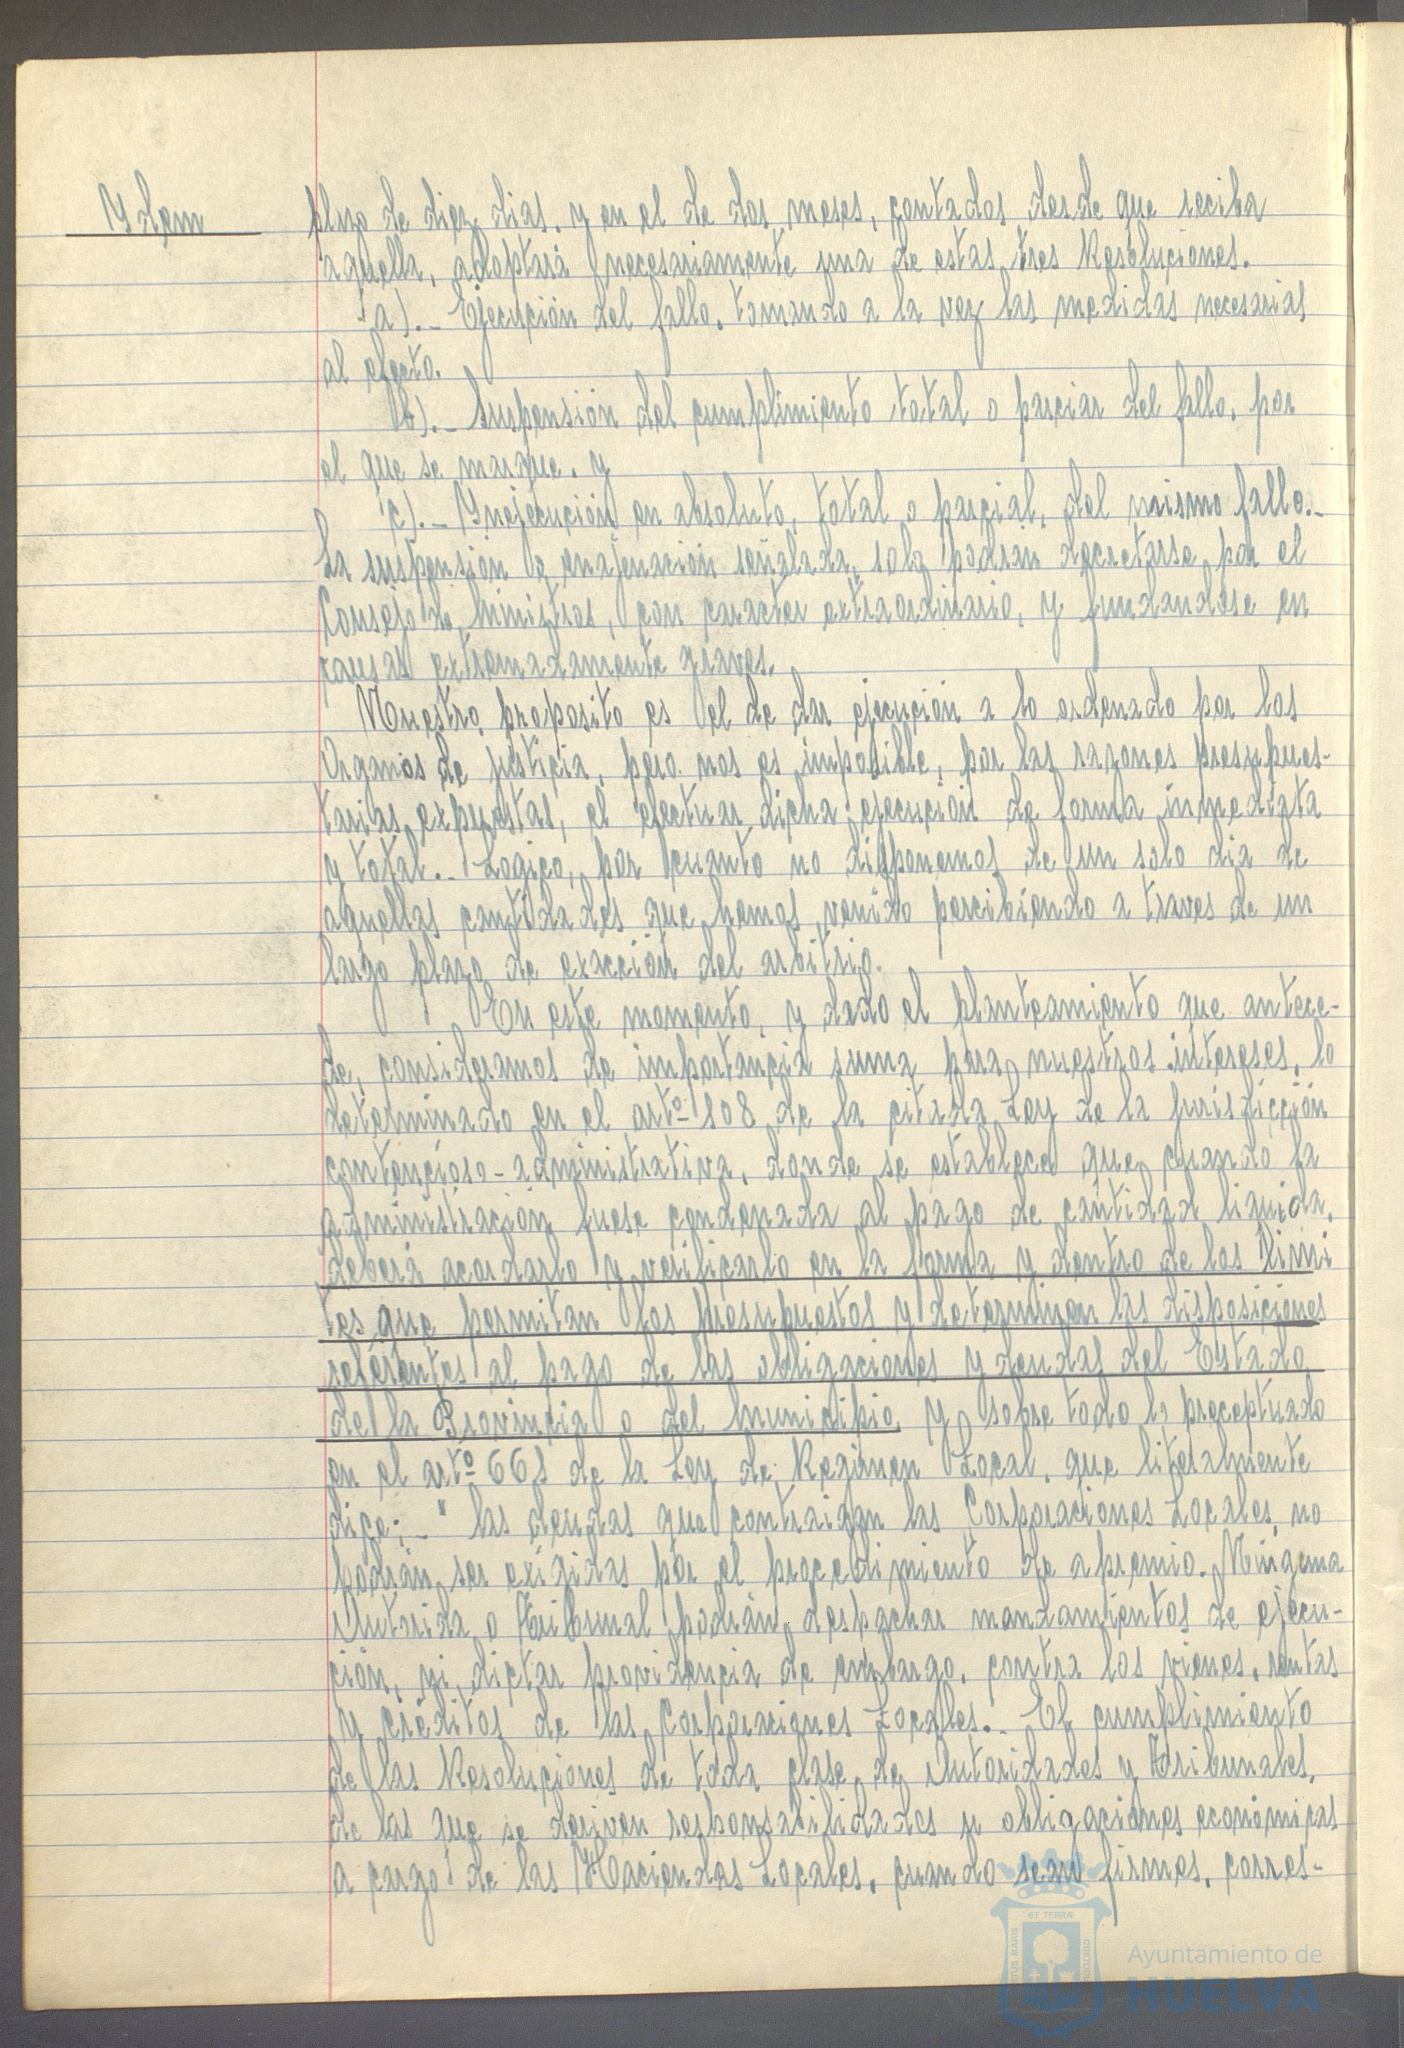 Ydem
plazo de diez dias. y en el de dos meses, contados desde que reciba
aquella, adoptará necesariamente una de estas tres Resoluciones.
a).- Ejecución del fallo, tomando a la vez las medidas necesarias
al efecto.
b).- Suspensión del cumplimiento total o parcial del fallo, por
el que se marque. y
c).- Ynejecución en absoluto, total o parcial, del mismo fallo.-
La suspensión o enajenación señalada, solo podran decretarse por el
Consejo de Ministros, con caracter extraordinario, y fundandose en
causas extremadamente graves.
Nuestro proposito es el de dar ejecución a lo ordenado por los
Organos de justicia, pero nos es imposible, por las razones presupues-
tarias expuestas, el efectuar dicha ejecución de forma inmediata
y total.- Logico, por cuanto no disponemos de un solo dia de
aquellas cantidades que hemos venido percibiendo a traves de un
largo plazo de exacción del arbitrio.
En este momento, y dado el planteamiento que antece-
de, consideramos de importancia suma para nuestros intereses, lo
determinado en el artº 108 de la citada Ley de la Jurisdicción
contencioso-administrativa, donde se establece que cuando la
administración fuese condenada al pago de cantidad liquida,
deberá acordarlo y verificarlo en la forma y dentro de los limi
tes que permitan los presupuestos y determinen las disposiciones
referentes al pago de las obligaciones y deudas del Estado
de la Provincia o del Municipio, y sobre todo lo preceptuado
en el artº 661 de la Ley de Regimen Local, que literalmente
dice:-" las deudas que contraigan las Corporaciones Locales, no
podrán ser exigidas por el procedimiento de apremio. Ninguna
Autorida o Tribunal podrán despachar mandamientos de ejecu-
ción, ni dictar providencia de embargo, contra los vienes, rentas
y créditos de las Corporaciones Locales.- El cumplimiento
de las Resoluciones de toda clase de Autoridades y Tribunales,
de las que se deriven responsabilidades u obligaciones económicas
a cargo de las Haciendas Locales, cuando sean firmes, corres-
ET TERRÆ
Ayuntamiento de
HUELVA